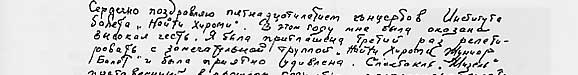 Сердечно поздравляю пятнадцатилетием концертов Института
балета „Нойти Хироми“. В этом году мне была оказана
высокая честь. Я была приглашена третий раз репети-
ровать с замечательной труппой „Нойти Хироми Жуниор
Балет“ и была приятно удивлена. Спектакль